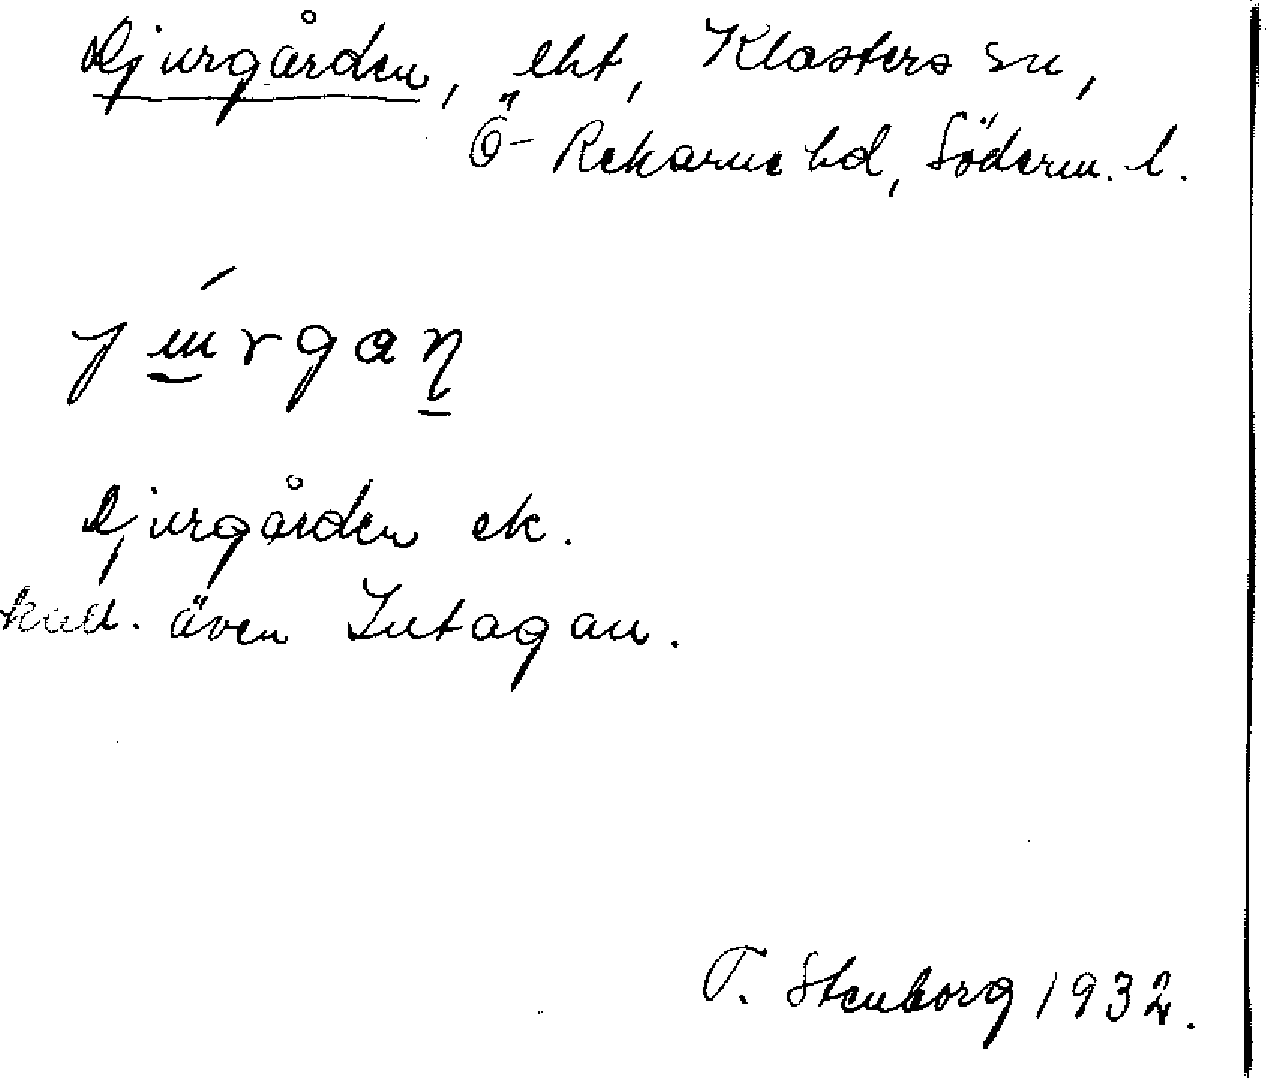 Djurgården, eht, Klosters sn,
Ö-Rekarne hd, Söderm. l.
Djurgården ek.
kall. även Intagan.
T. Stenborg 1932.